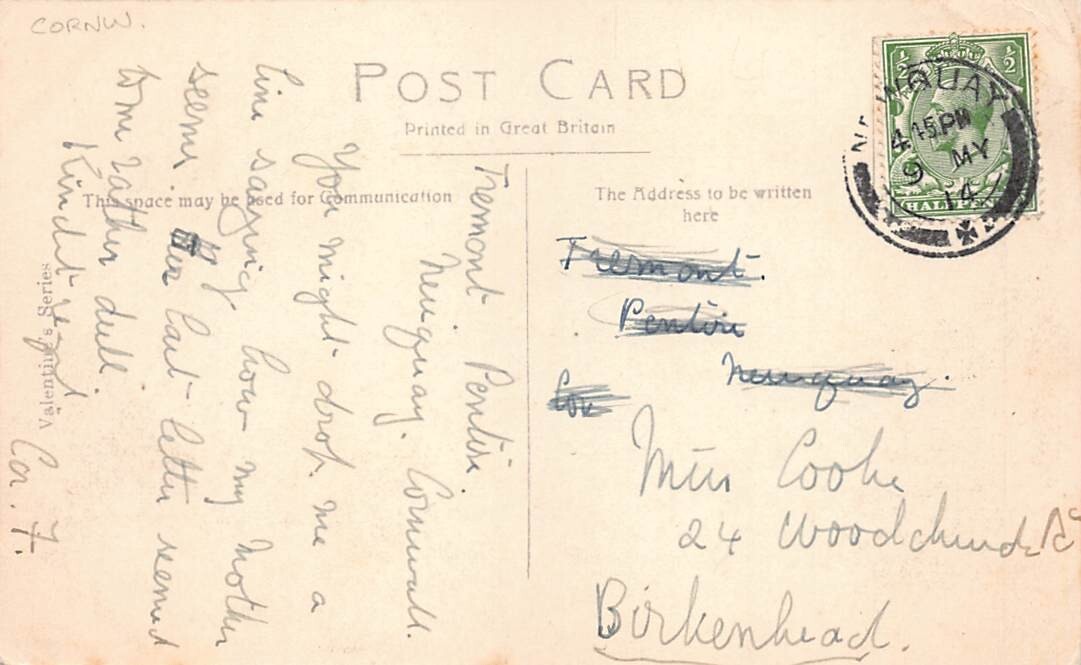 CORNW.
POST CARD
Printed in Great Britain
This space may be used for Communication
The Address to be written
here
Valentine's Series
½ ½
HALFPENNY
NEWQUAY
4.15 PM
9 MY
14
Tremont Pentire.
Newquay. Cornwall.
You might drop me a
line saying how my Mother
seems. Her last letter seemed
to me rather dull.
Kindest regds
Tremont.
Pentire
Newquay.
Cor
Miss Cooke
24 Woodchurch Rd
Birkenhead.